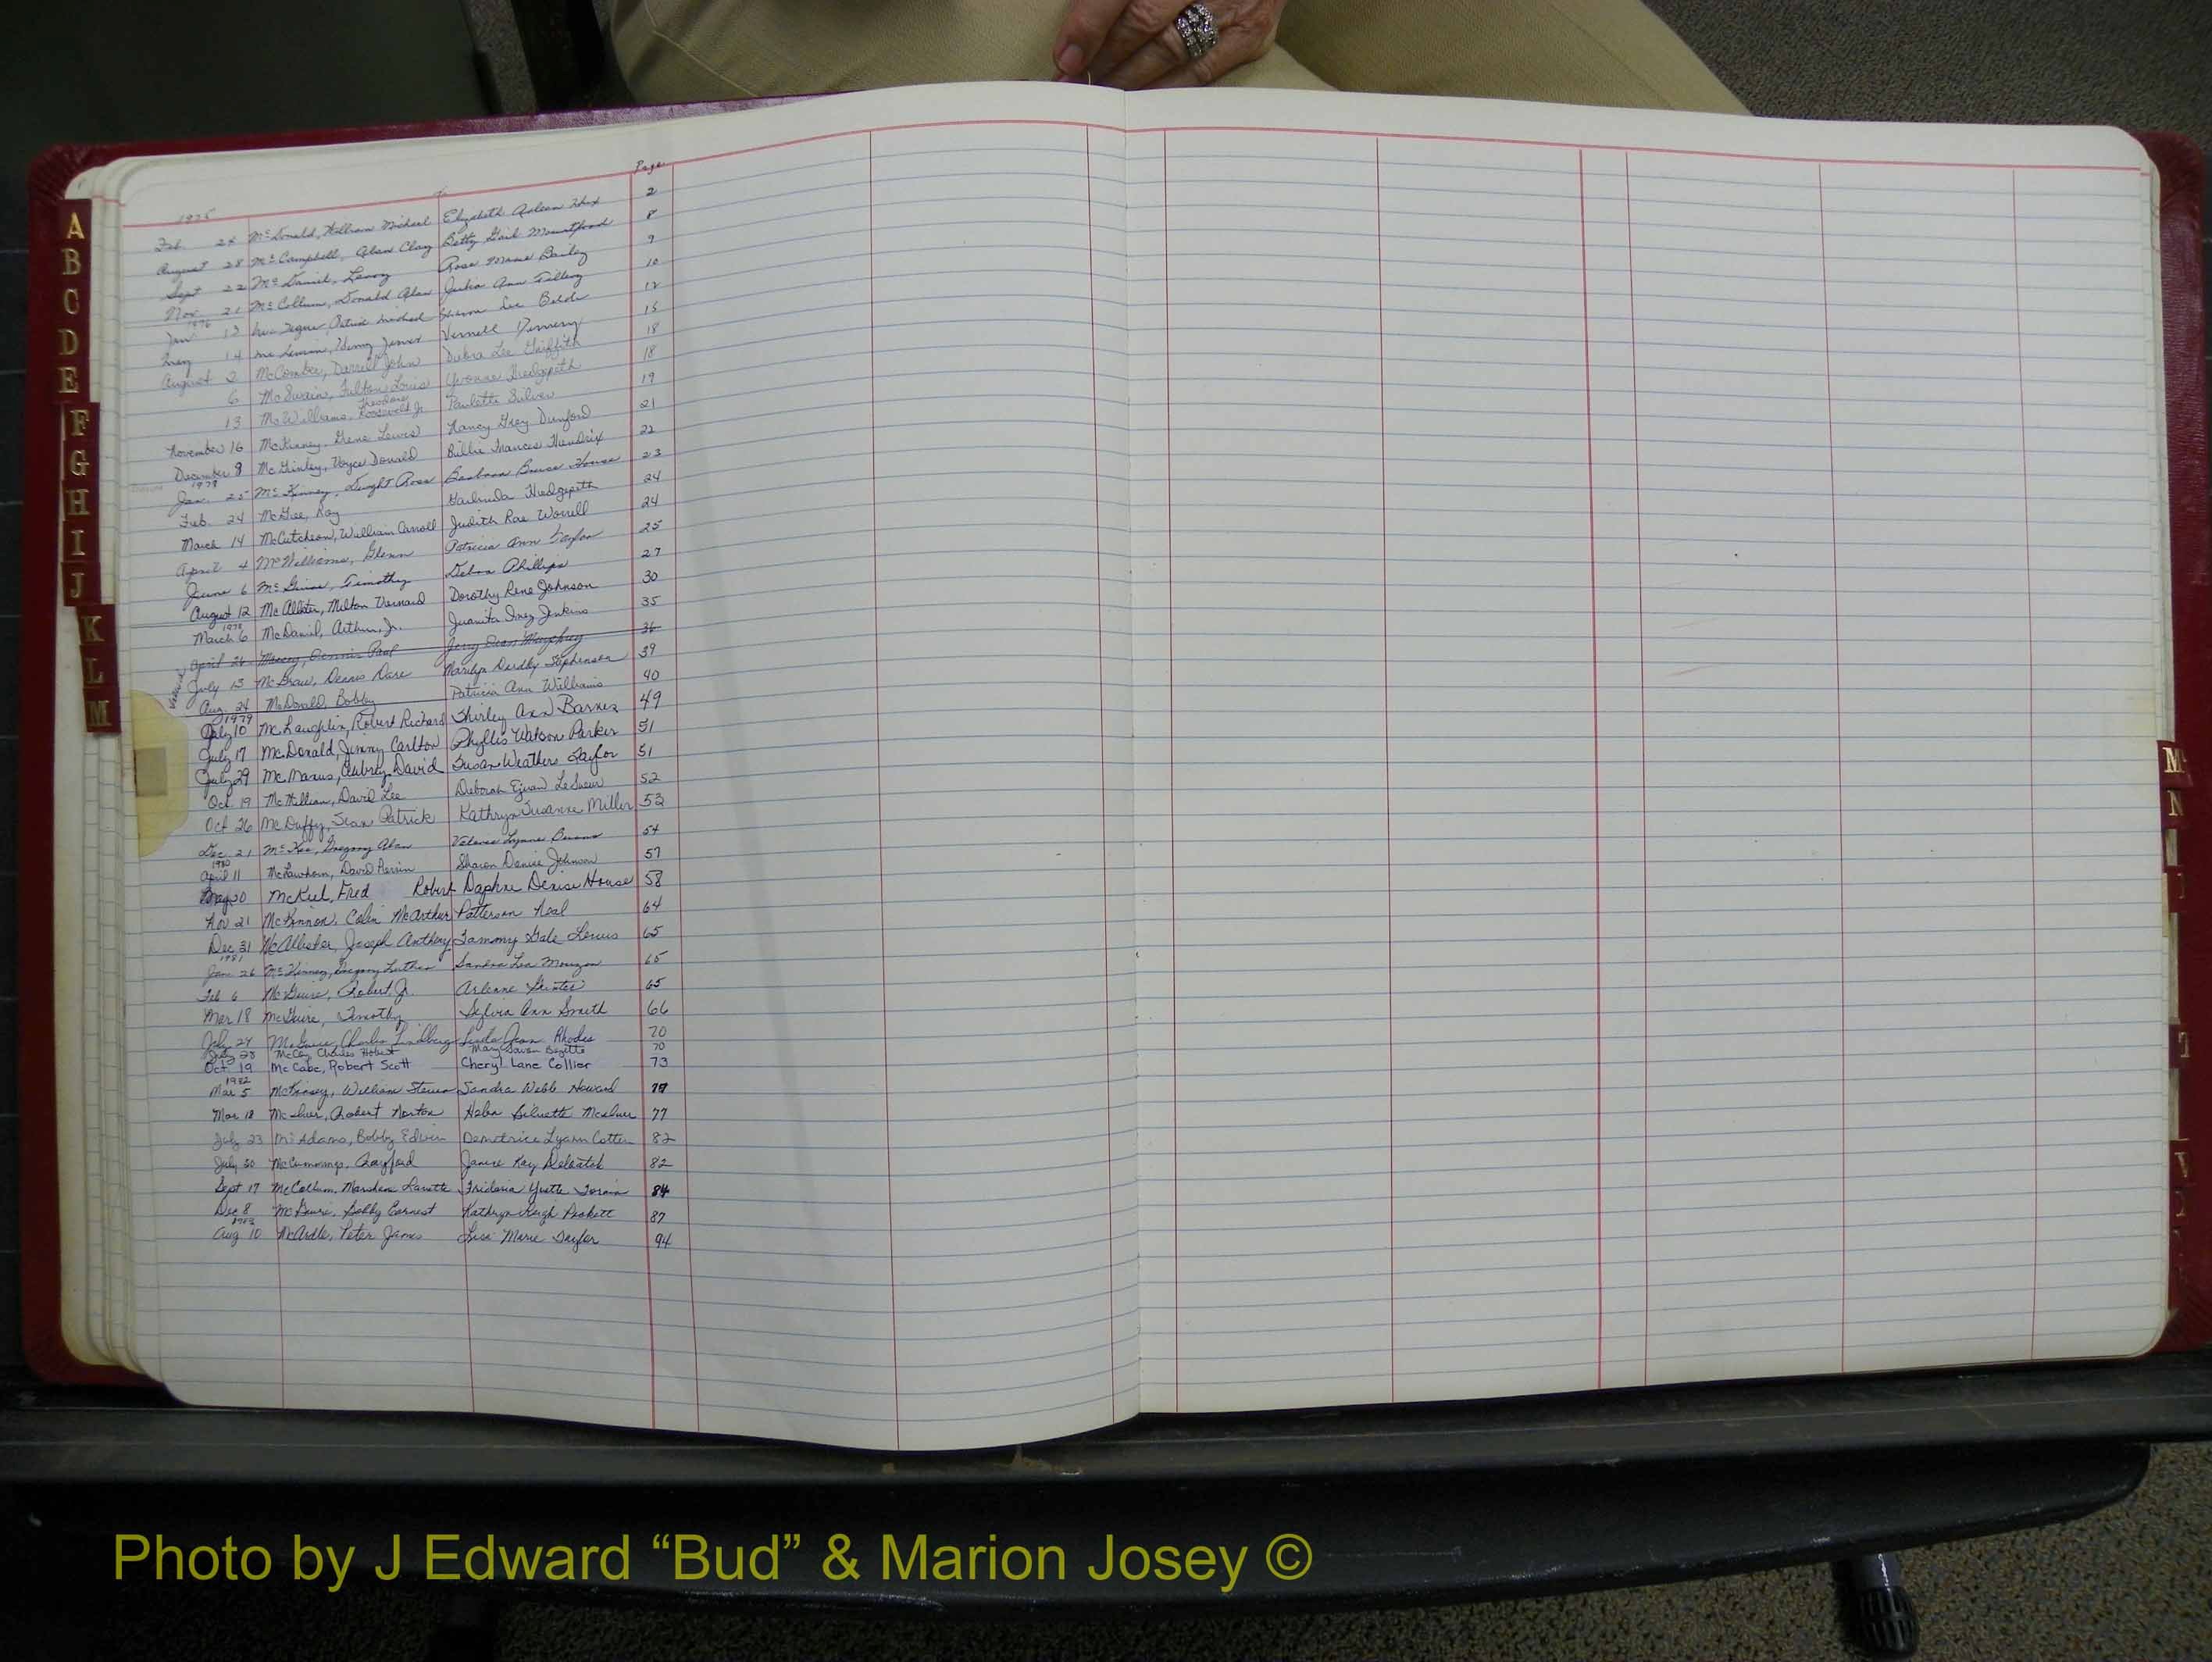 Page
1975 To
Feb. 28 McDonald, William Michael Elizabeth Arleen Hux 2
August 28 McCampbell, Alan Clay Betty Gail Mountford 8
Sept 22 McDaniel, Leroy Rosa Bailey 9
Nov. 21 McCollum, Donald Alan Julia Ann 10
1976
Jan 13 Patrick Michael Sharon Lee 12
May 14 Henry James Vernell 15
August 2 McComber, Darrell John Debra Lee Griffith 18
6 McSwain, Fulton Louis Yvonne Hedgepeth 18
13 McWilliams, Theodore Roosevelt Jr. Paulette Silver 19
November 16 McKinney, Gene Lewis Nancy Gray Dunford 21
December 8 McGinley, Voyce Donald Billie Frances Hendrix 22
Jan. 25 McKinney, Dwight Ross Barbara House 23
Feb. 24 McGee, Ray Hedgepeth 24
March 14 McCutcheon, William Carroll Judith Rae Worrell 24
April 4 McWilliams, Glenn Patricia Ann Taylor 25
June 6 Timothy Debra Phillips 27
August 12 McAllster, Milton Vernard Dorothy Rene Johnson 30
1978
March 6 McDaniel, Arthur, Jr. Juanita Inez Jenkins 35
April 26 Dennis Paul 36
July 13 Dennis Dare Marilyn Stephenson 39
Aug. 24 McDonald, Bobby Patricia Ann Williams 40
1979
July 10 McLaughlin, Robert Richard Shirley Ann Barnes 49
July 17 McDonald, Jimmy Carlton Phyllis Watson Parker 51
July 29 McManus, Aubrey David Susan Weathers Taylor 51
Oct. 19 McMillian, David Lee Deborah LeSueur 52
Oct 26 McDuffy, Sean Patrick Kathryn Suzanne Miller 53
Dec. 21 McKee, Gregory Alan Lynne 54
1980
April 11 McLawhorn, David Sharon Denise Johnson 57
May 30 McKeel, Fred Robert Daphne Denise House 58
Nov 21 McKinnon, Colin McArthur Patterson Neal 64
Dec 31 McAllister, Joseph Anthony Tammy Gale Lewis 65
1981
Jan 26 McKinney, Gregory Luther Sandra Lea 65
Feb 6 McGuire, Robert Jr. Arleane 65
Mar 18 McGuire, Timothy Sylvia Ann Smith 66
July 24 McGuire, Charles Lindberg Linda Jean Rhodes 70
28 McCoy, Charles Hobert Mary 70
Oct 19 McCabe, Robert Scott Cheryl Lane Collier 73
1982
Mar 5 McKinsey, William Steven Sandra Webb Howard 77
Mar 18 McIver, Robert Norton Helen McIver 77
July 23 McAdams, Bobby Edwin Demetrice Lyann Cotten 82
July 30 McCummings, Crayford Janice Kay 82
Sept 17 McCollum, Lanette Yvette 84
Dec 8 McGuire, Bobby Earnest Kathryn Leigh 87
1983
Aug 10 McArdle, Peter James Lisa Marie Taylor 94
A
B
C
D
E
F
G
H
I
J
K
L
M
N
T
V
Photo by J Edward “Bud” & Marion Josey ©